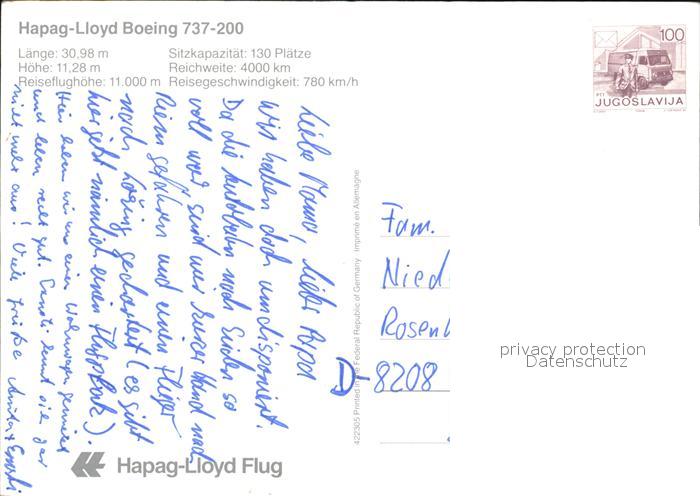 Hapag-Lloyd Boeing 737-200
Länge: 30,98 m Sitzkapazität: 130 Plätze
Höhe: 11,28 m Reichweite: 4000 km
Reiseflughöhe: 11.000 m Reisegeschwindigkeit: 780 km/h
100
PTT
JUGOSLAVIJA
Liebe Mama, lieber Papa
wir haben doch umdisponiert.
Da die Autobahn nach Süden so
voll war sind wir kurzer Hand nach
Riem gefahren und einen Flieger
nach gechartert (es gibt
hier jetzt nämlich einen Flughafen).
Hier haben wir uns einen Wohnwagen gemietet
und leben recht gut. kennt sich gar
nicht mehr aus! Viele Grüße
422305 Printed in the Federal Republic of Germany Imprimé en Allemagne
Fam.
Nied
Rosen
D-8208
privacy protection
Datenschutz
Hapag-Lloyd Flug